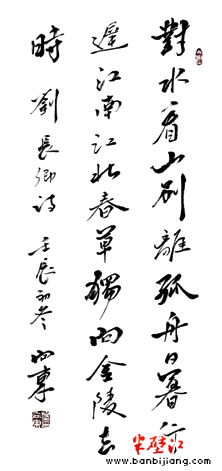 對水看山别離孤舟日暮行
遲江南江北春草獨向金陵去
時 劉長卿詩 壬辰初冬
半壁江
www.banbijiang.com